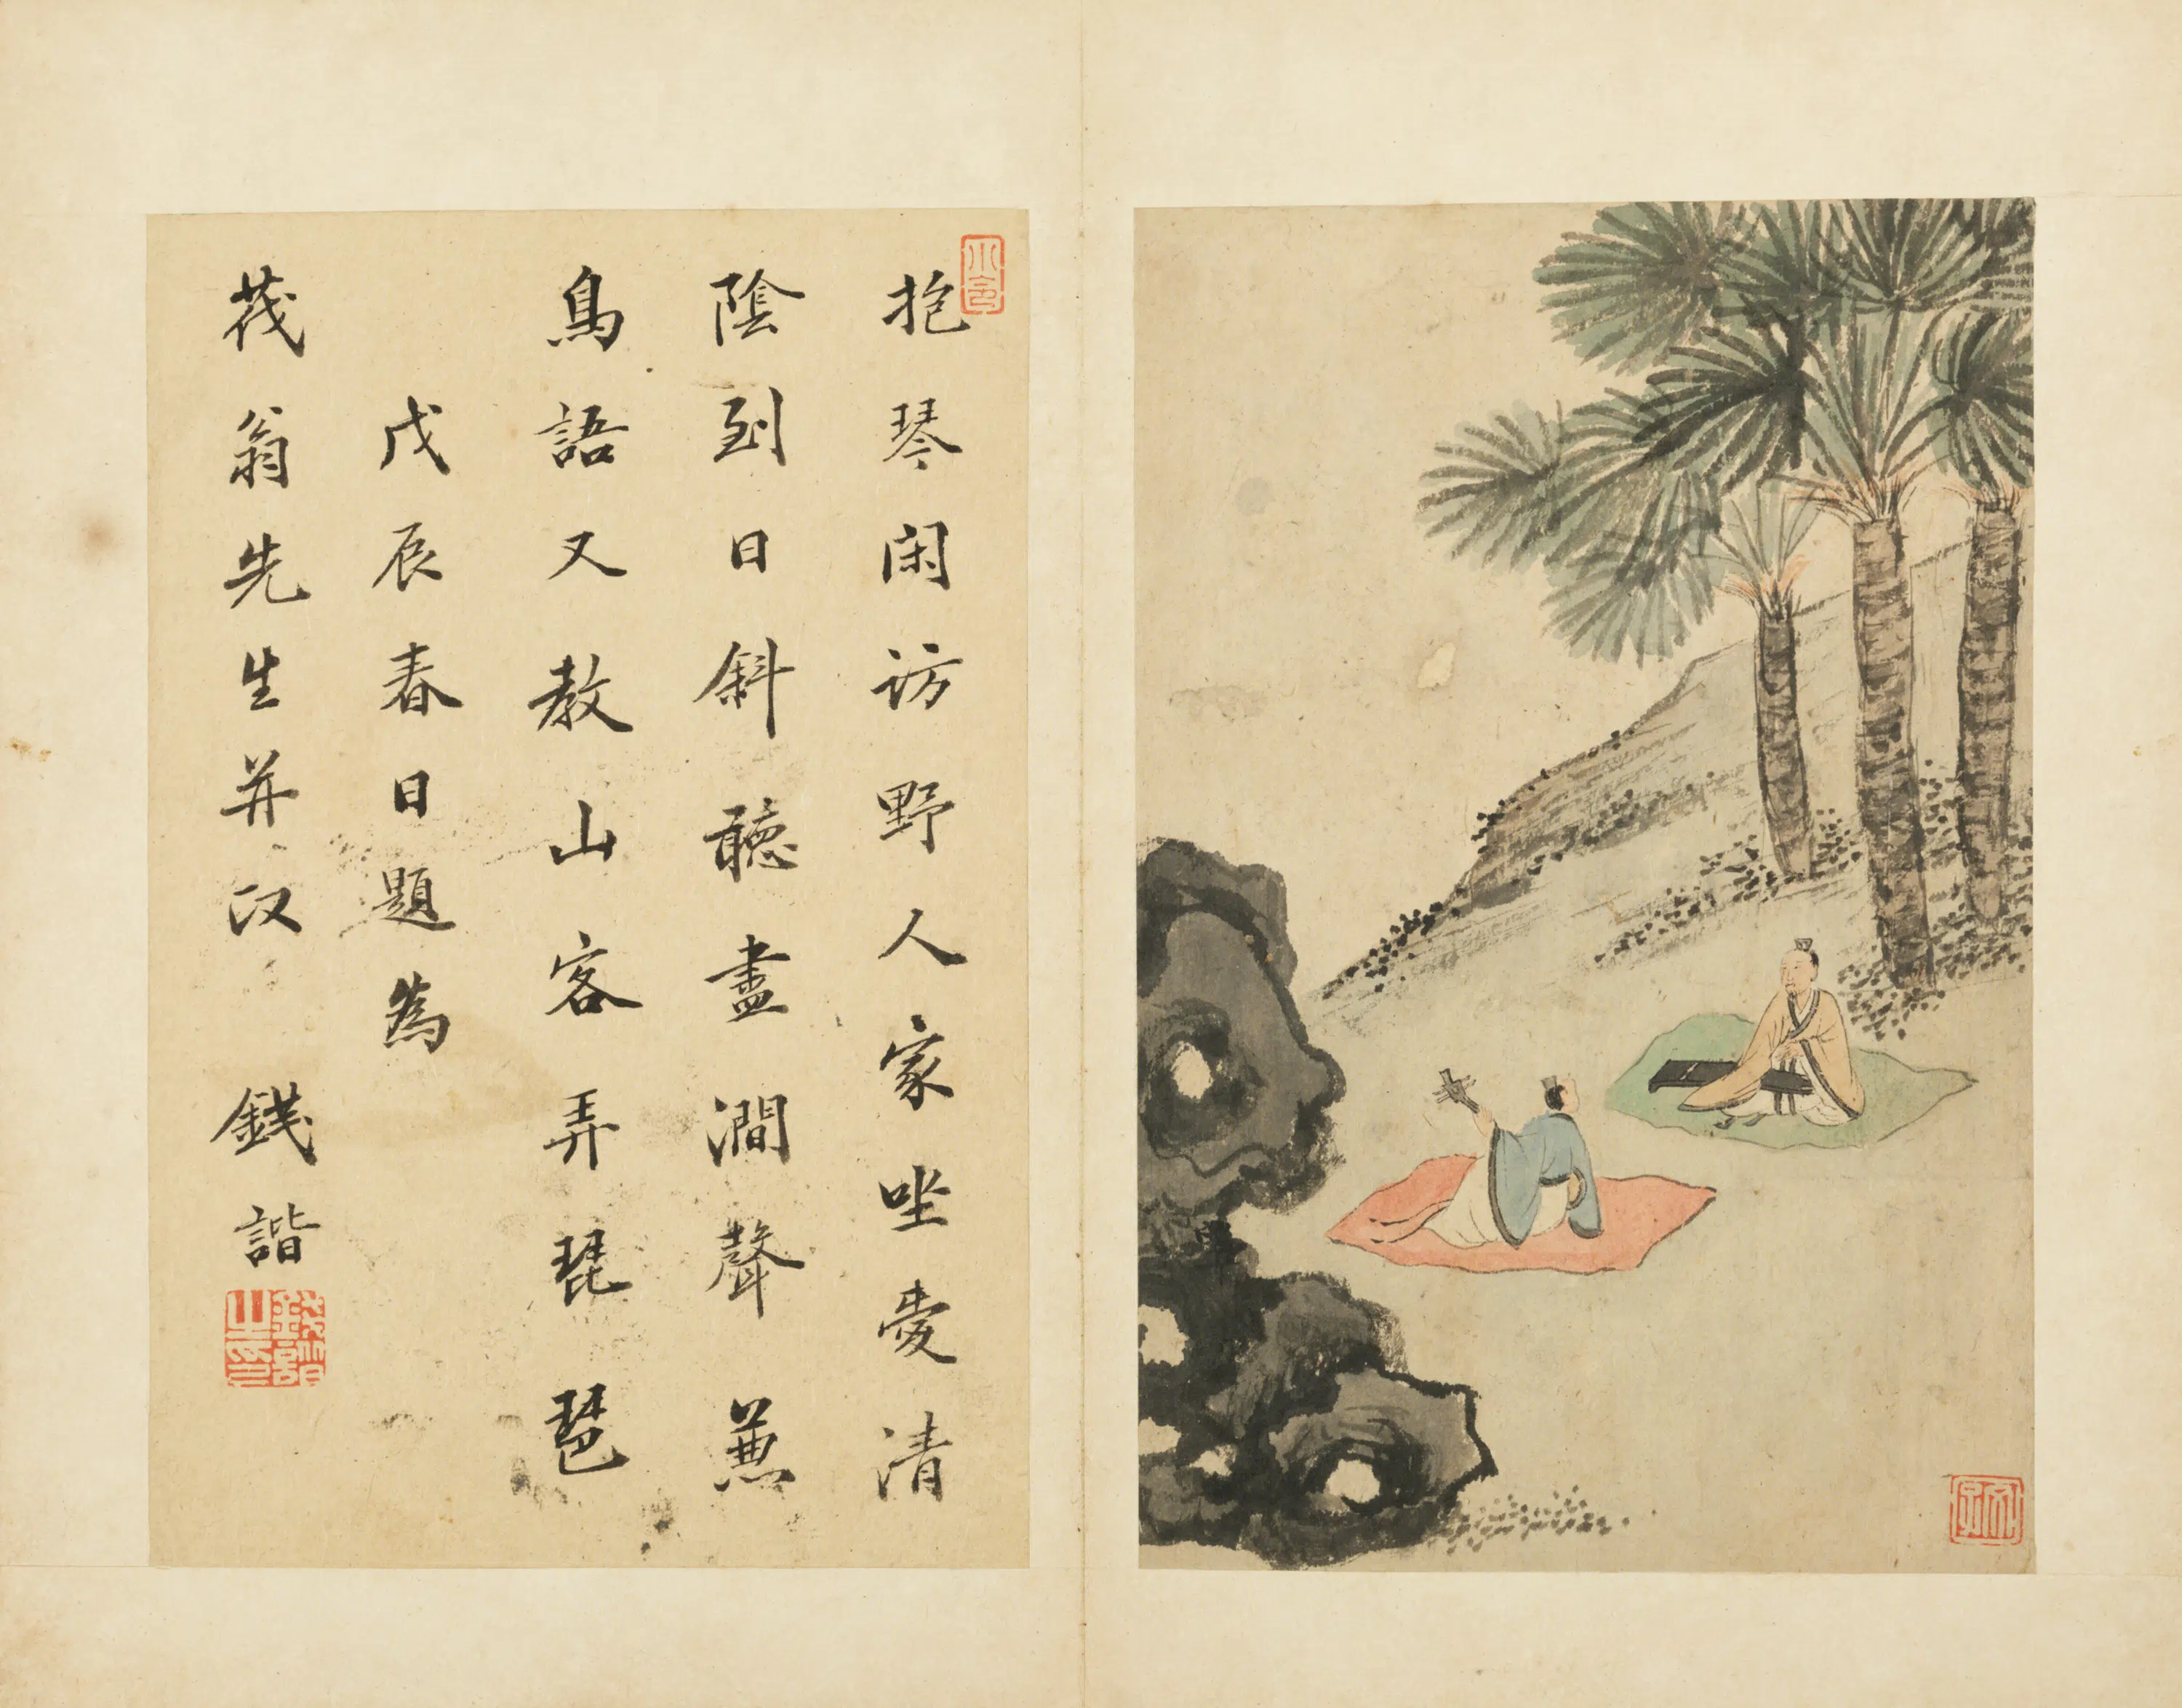 抱琴閑訪野人家坐愛清
陰到日斜聽盡澗聲兼
鳥語又教山客弄琵琶
戊辰春日題為
茂翁先生并政 錢諧
錢諧之印